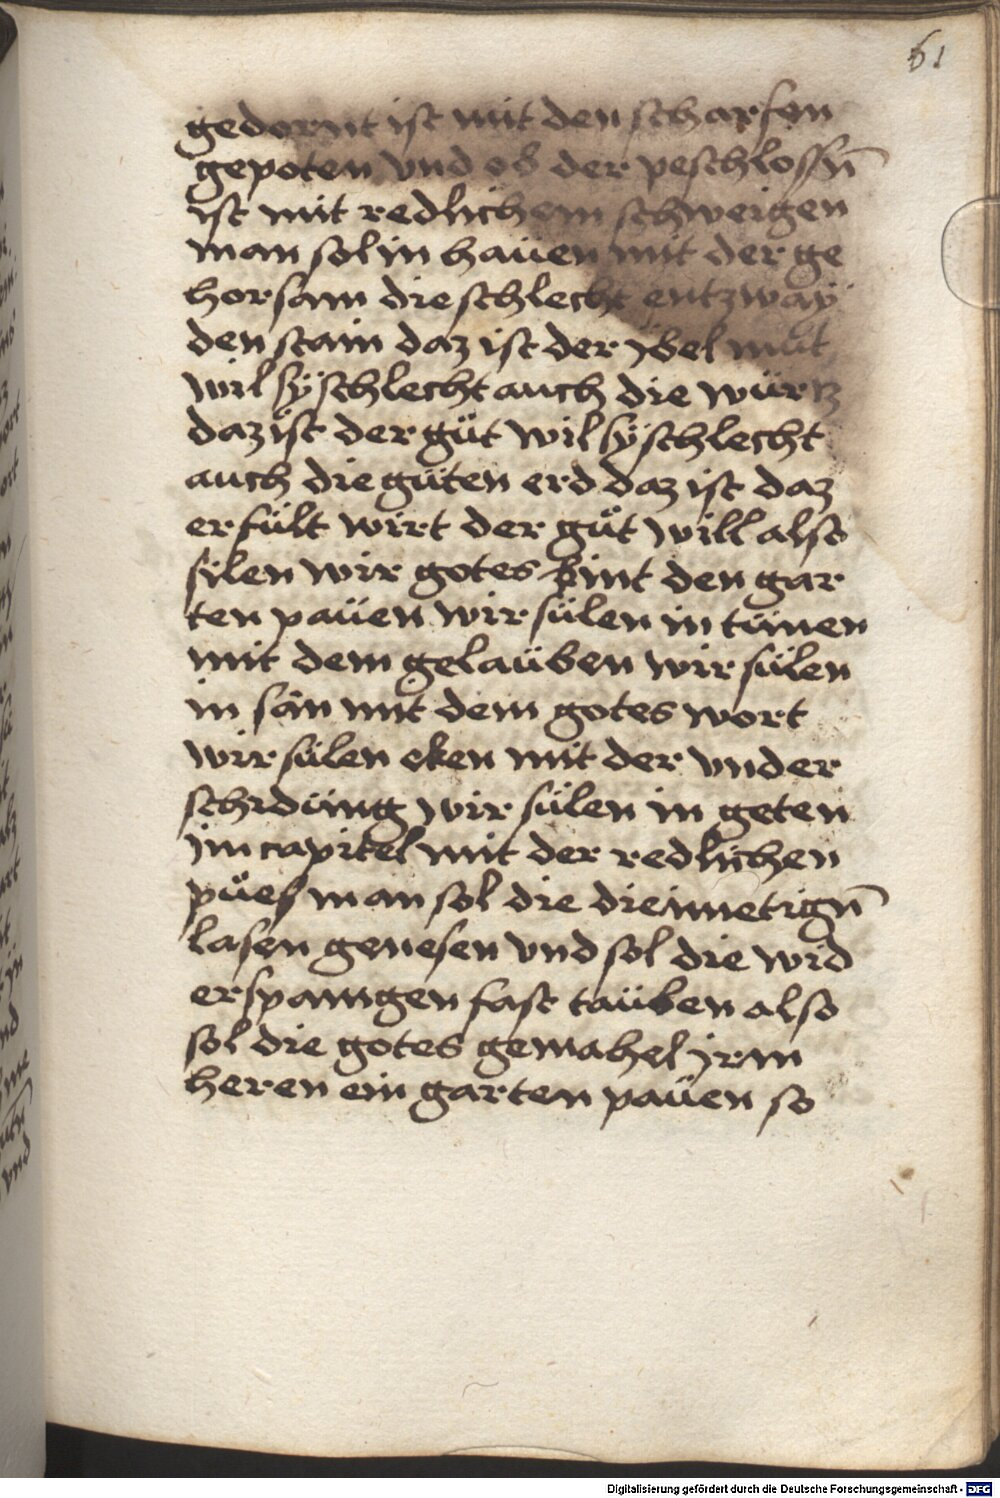 61
gedornt ist mit den scharfen
gepoten vnd ob der peschlossn̄
ist mit redlichem schweigen
man sol in haüen mit der ge
horsam die schlecht entzwaÿ
den stain daz ist der ÿbel mut
wil sÿ schlecht auch die würtz
daz ist der güt wil sÿ schlecht
auch die güten erd daz ist daz
erfült wirt der güt will also
sülen wir gotes kint den gar
ten paüen wir sülen in tünen
mit dem gelaüben wir sülen
in sän mit dem gotes wort
wir sülen eken mit der vnder
schidüng wir sülen in geten
im capitel mit der redlichen
püeß man sol die diemetign̄
lasen genesen vnd sol die wid
erspamgen fast taüben also
sol die gotes gemahel irm
heren ein garten paüen so
Digitalisierung gefördert durch die Deutsche Forschungsgemeinschaft - DFG